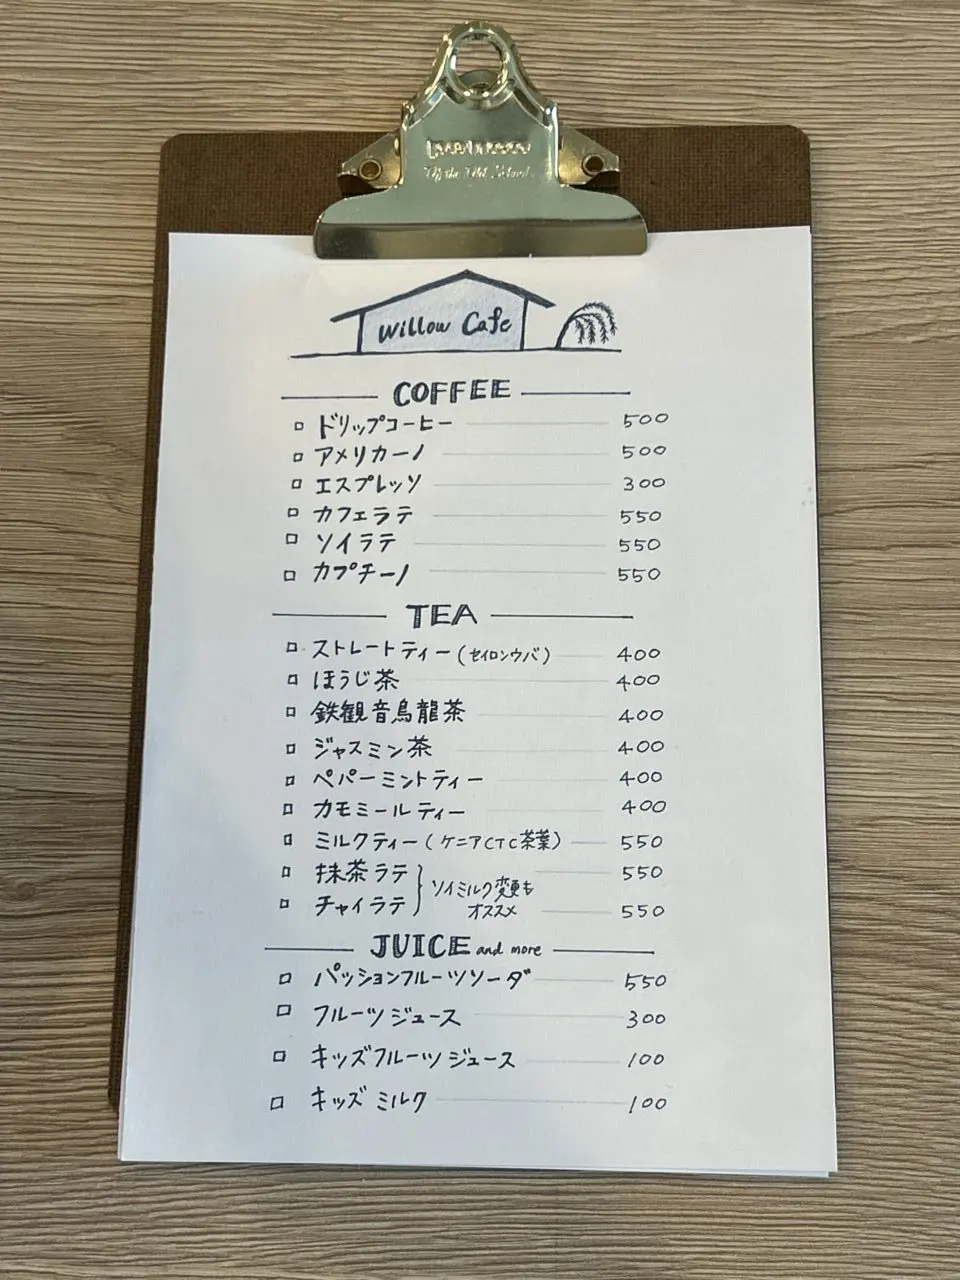 Of the Old School
Willow Cafe
COFFEE
ドリップコーヒー 500
アメリカーノ 500
エスプレッソ 300
カフェラテ 550
ソイラテ 550
カプチーノ 550
TEA
ストレートティー(セイロンウバ) 400
ほうじ茶 400
鉄観音烏龍茶 400
ジャスミン茶 400
ペパーミントティー 400
カモミールティー 400
ミルクティー(ケニアCTC茶葉) 550
抹茶ラテ 550
ソイミルク変更も
チャイラテ オススメ 550
JUICE and more
パッションフルーツソーダ 550
フルーツジュース 300
キッズフルーツジュース 100
キッズミルク 100